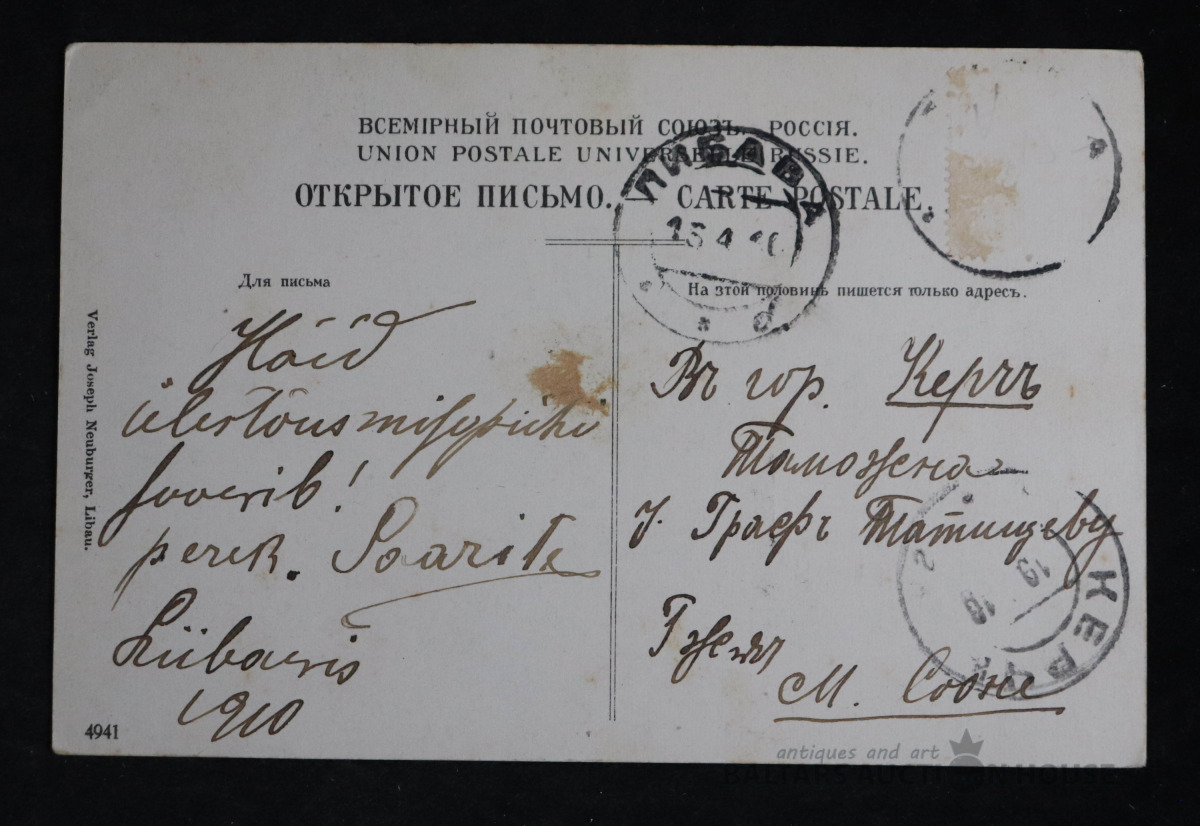 ВСЕМІРНЫЙ ПОЧТОВЫЙ СОЮЗЪ. РОССІЯ.
UNION POSTALE UNIVERSELLE RUSSIE.
ОТКРЫТОЕ ПИСЬМО. — CARTE POSTALE.
ЛИБАВА
15 4 10
Для письма
На этой половинѣ пишется только адресъ.
Verlag Joseph Neuburger, Libau.
Häid
ülestõusmisepühi
soovib!
perek. Saarik
Liibavis
1910
4941
Въ гор. Керчъ
Таможена
Графъ Татищеву
Гжем
М. Соожс
КЕРЧЬ
19
antiques and art
BALTARS AUCTION HOUSE